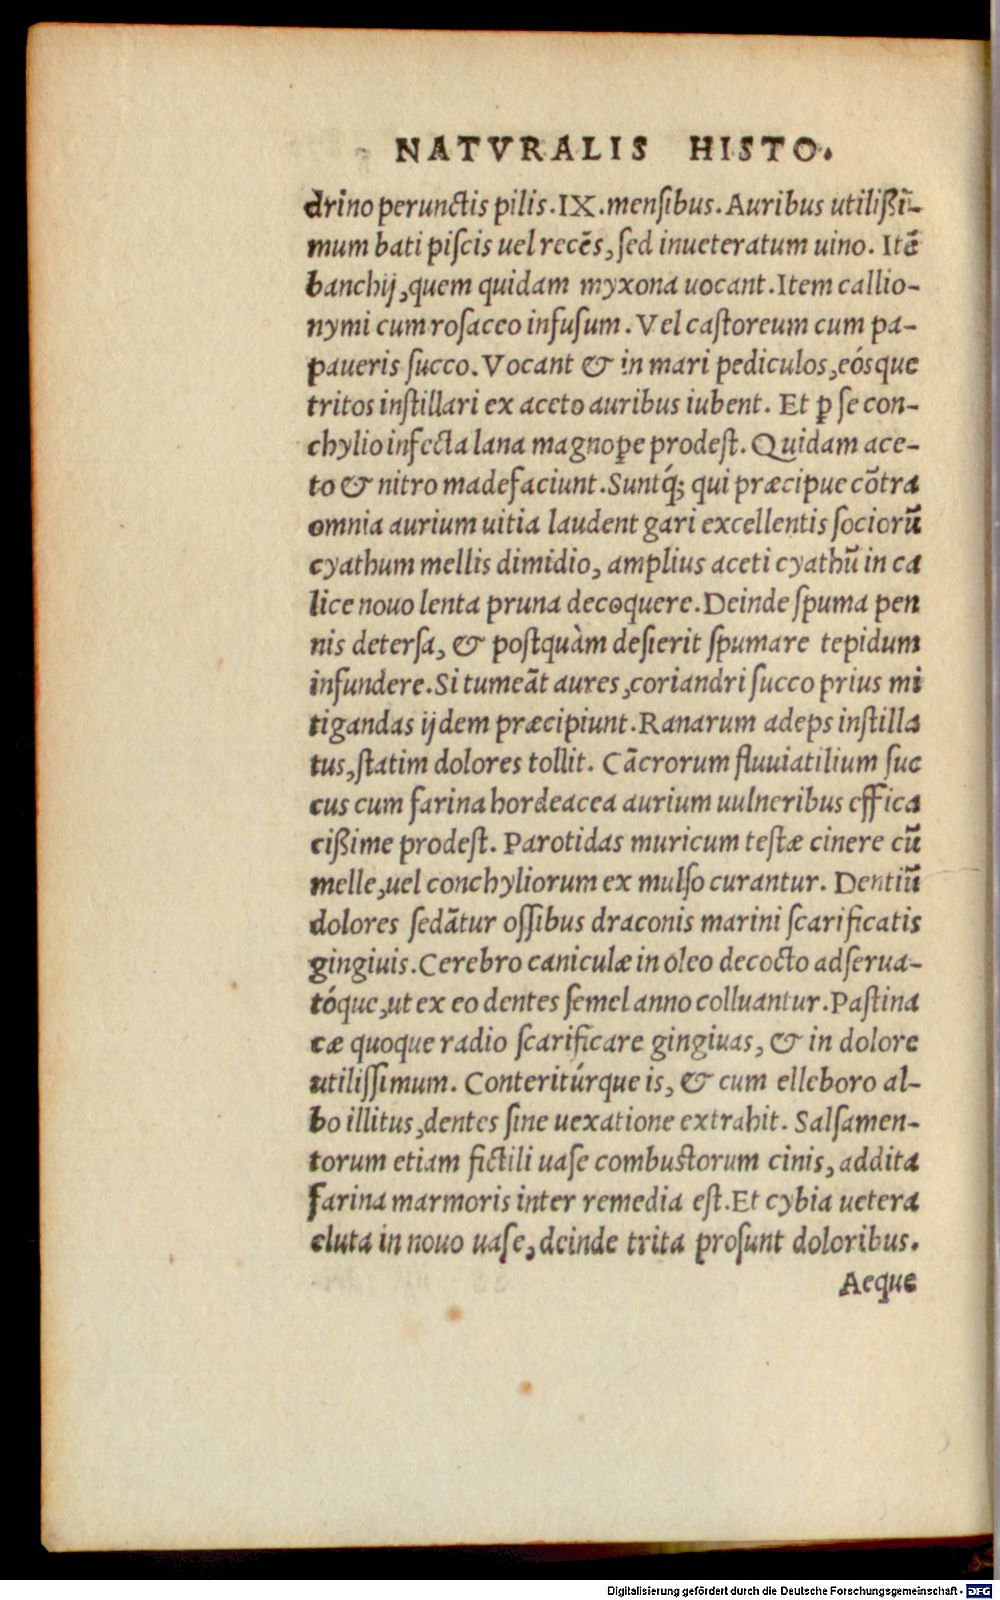 NATVRALIS HISTO.
drino perunctis pilis. IX. mensibus. Auribus utilißi-
mum bati piscis uel recẽs, sed inueteratum uino. Itẽ
banchij, quem quidam myxona uocant. Item callio-
nymi cum rosaceo infusum. Vel castoreum cum pa-
paueris succo. Vocant & in mari pediculos, eósque
tritos instillari ex aceto auribus iubent. Et ꝑ se con-
chylio infecta lana magnoꝑe prodest. Quidam ace-
to & nitro madefaciunt. Suntq́; qui præcipue cõtra
omnia aurium uitia laudent gari excellentis sociorũ
cyathum mellis dimidio, amplius aceti cyathũ in ca
lice nouo lenta pruna decoquere. Deinde spuma pen
nis detersa, & postquàm desierit spumare tepidum
infundere. Si tumeãt aures, coriandri succo prius mi
tigandas ijdem præcipiunt. Ranarum adeps instilla
tus, statim dolores tollit. Cãcrorum fluuiatilium suc
cus cum farina hordeacea aurium uulneribus effica
cißime prodest. Parotidas muricum testæ cinere cũ
melle, uel conchyliorum ex mulso curantur. Dentiũ
dolores sedãtur ossibus draconis marini scarificatis
gingiuis. Cerebro caniculæ in oleo decocto adserua-
tóque, ut ex eo dentes semel anno colluantur. Pastina
cæ quoque radio scarificare gingiuas, & in dolore
utilissimum. Conteritúrque is, & cum elleboro al-
bo illitus, dentes sine uexatione extrahit. Salsamen-
torum etiam fictili uase combustorum cinis, addita
farina marmoris inter remedia est. Et cybia uetera
eluta in nouo uase, deinde trita prosunt doloribus.
Aeque
Digitalisierung gefördert durch die Deutsche Forschungsgemeinschaft - DFG